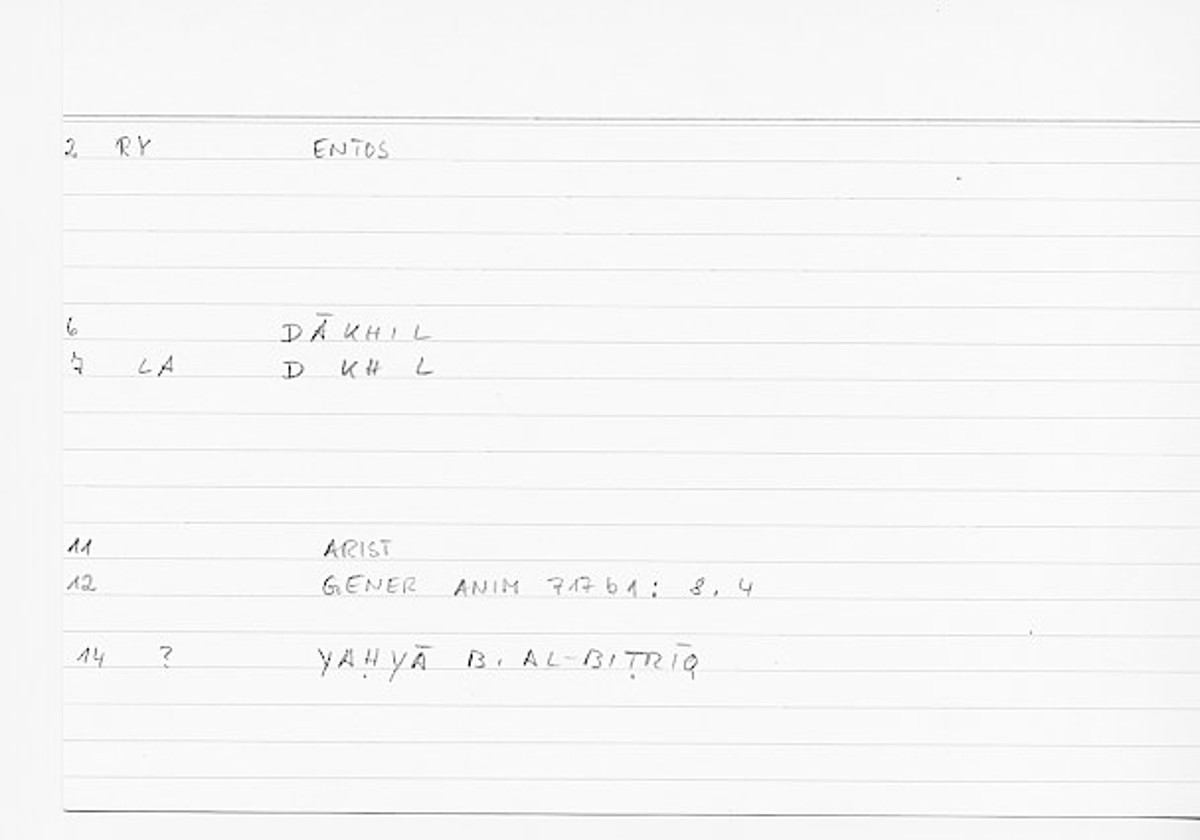 2 RY ENTOS
6 DĀKHIL
7 LA D KH L
11 ARIST
12 GENER ANIM 717b1: 8, 4
14 ? YAḤYĀ B. AL-BIṬRĪQ